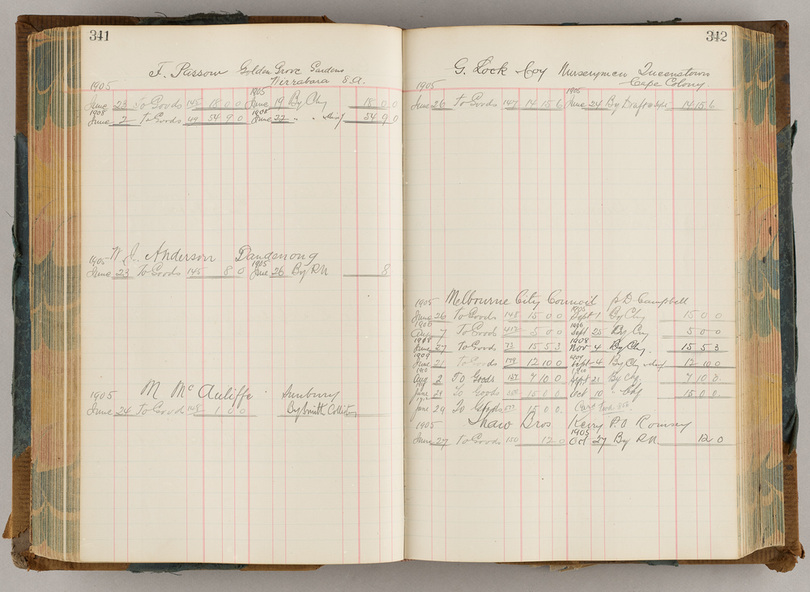 341
F. Pussow Golden Grove Gardens
Wirrabara S.A.
1905 1905
June 23 To Goods 145 18 0 0 June 19 By Chq 18 0 0
1908 1908
June 2 To Goods 49 54 9 0 June 22 " " 54 9 0
1905 W. J. Anderson Dandenong
1905
June 23 To Goods 145 8 0 June 26 By PN 8
1905 M McAuliffe Sunbury
June 24 To Goods 1 0 0 By Smith Collector
342
G. Lock & Coy Nurserymen Queenstown
Cape Colony
1905 1905
June 26 To Goods 147 14 15 6 June 24 By Draft 14 15 6
1905 Melbourne City Council p D Campbell
1905
June 26 To Goods 148 15 0 0 Sept 1 By Chq 15 0 0
1906
Aug 7 To Goods 5 0 0 Sept 25 By Chq 5 0 0
1908 1908
June 27 To Goods 72 15 5 3 Nov 4 By Chq 15 5 3
1909
June 21 To Goods 12 10 0 Sept 4 By Chq 12 10 0
1910
Aug 2 To Goods 7 10 0 Sept 21 By Chq 7 10 0
June 21 To Goods 15 0 0 Oct 10 " Chq 15 0 0
June 29 To Goods 15 0 0
1905 Shaw Bros Kerry P.O Romsey
1905
June 27 To Goods 150 12 0 Oct 27 By PN 12 0